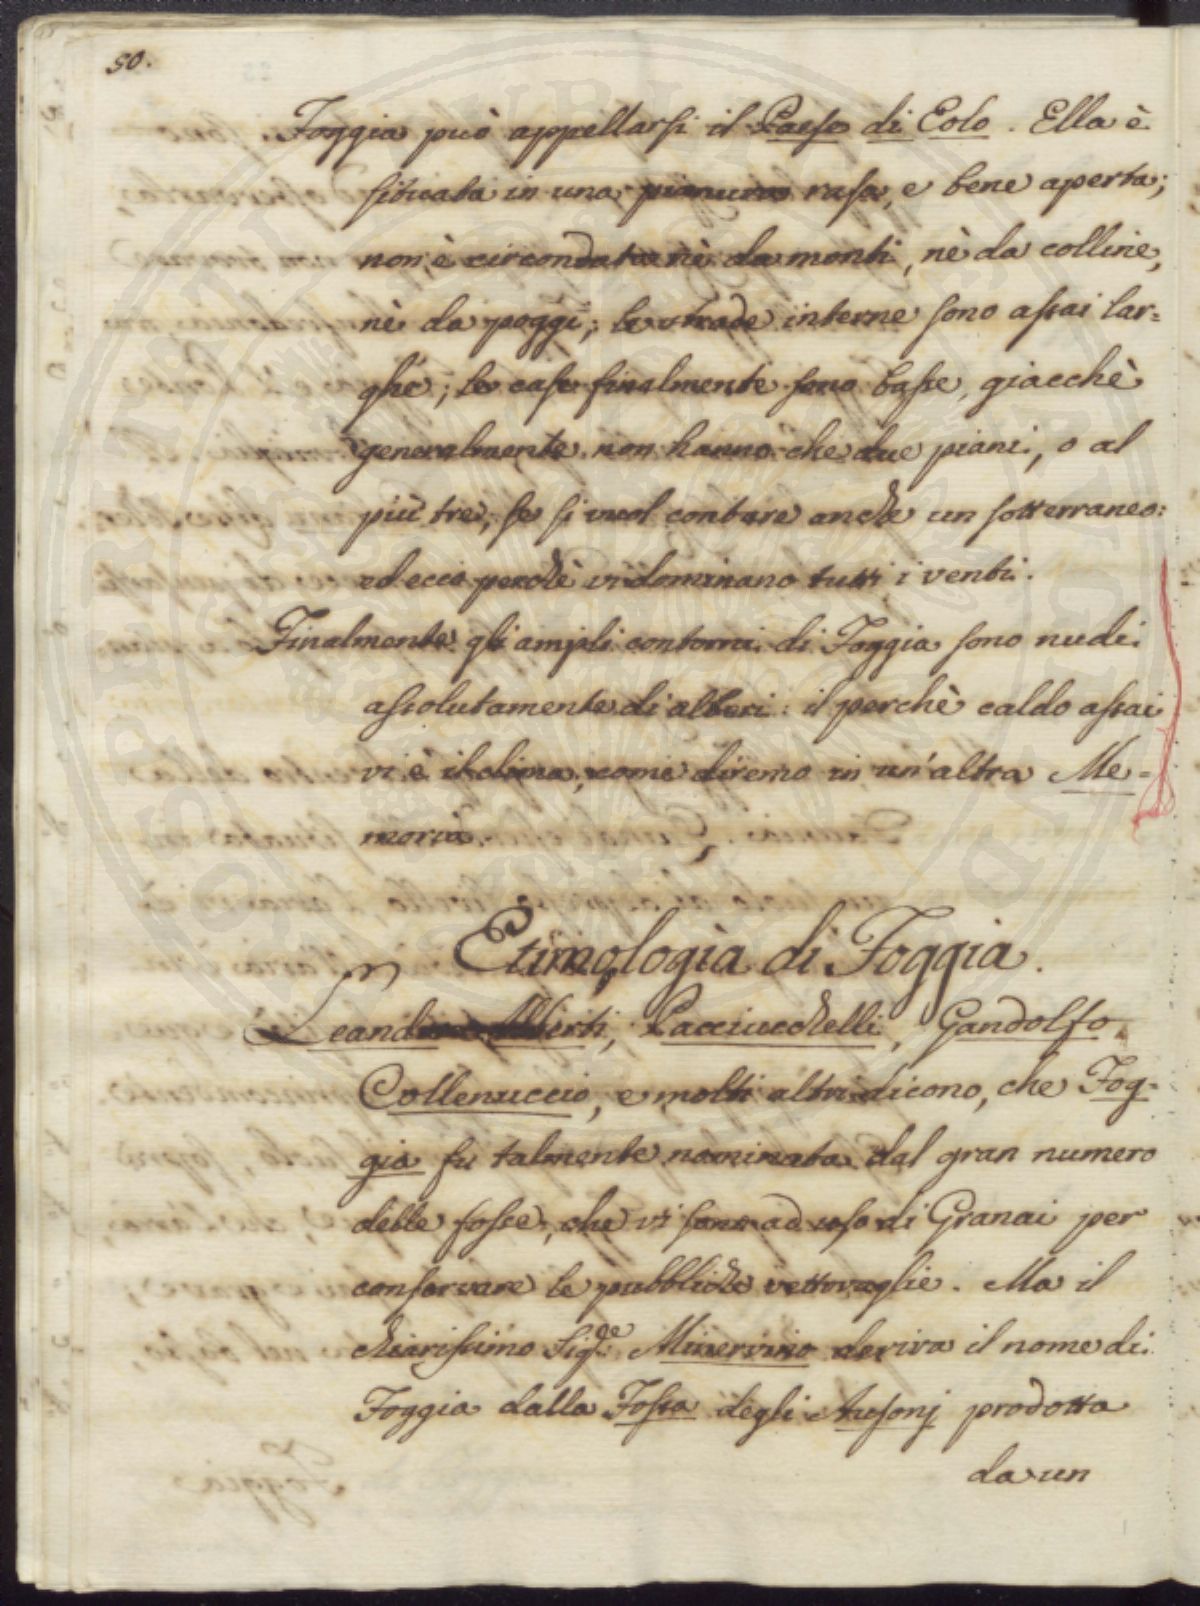 50.
Foggia può appellarsi il Paese di Eolo. Ella è
situata in una pianura rasa, e bene aperta;
non è circondata nè da monti, nè da colline,
nè da poggi; le strade interne sono assai lar=
ghe; le case finalmente sono basse, giacchè
generalmente non hanno che due piani, o al
più tre, se si vuol contare anche un sotterraneo:
ed ecco perchè vi dominano tutti i venti.
Finalmente gli ampli contorni di Foggia sono nudi
assolutamente di alberi: il perchè caldo assai
vi è il clima, come diremo in un'altra Me=
moria.
Etimologia di Foggia.
Leandro Alberti, Pacciucchelli, Gandolfo,
Collenuccio, e molti altri dicono, che Fog=
gia fu talmente nominata dal gran numero
delle fosse, che vi sono ad uso di Granai per
conservare le pubbliche vettovaglie. Ma il
chiarissimo Sig.de Minervino deriva il nome di
Foggia dalla Fossa degli Ausonj prodotta
da un